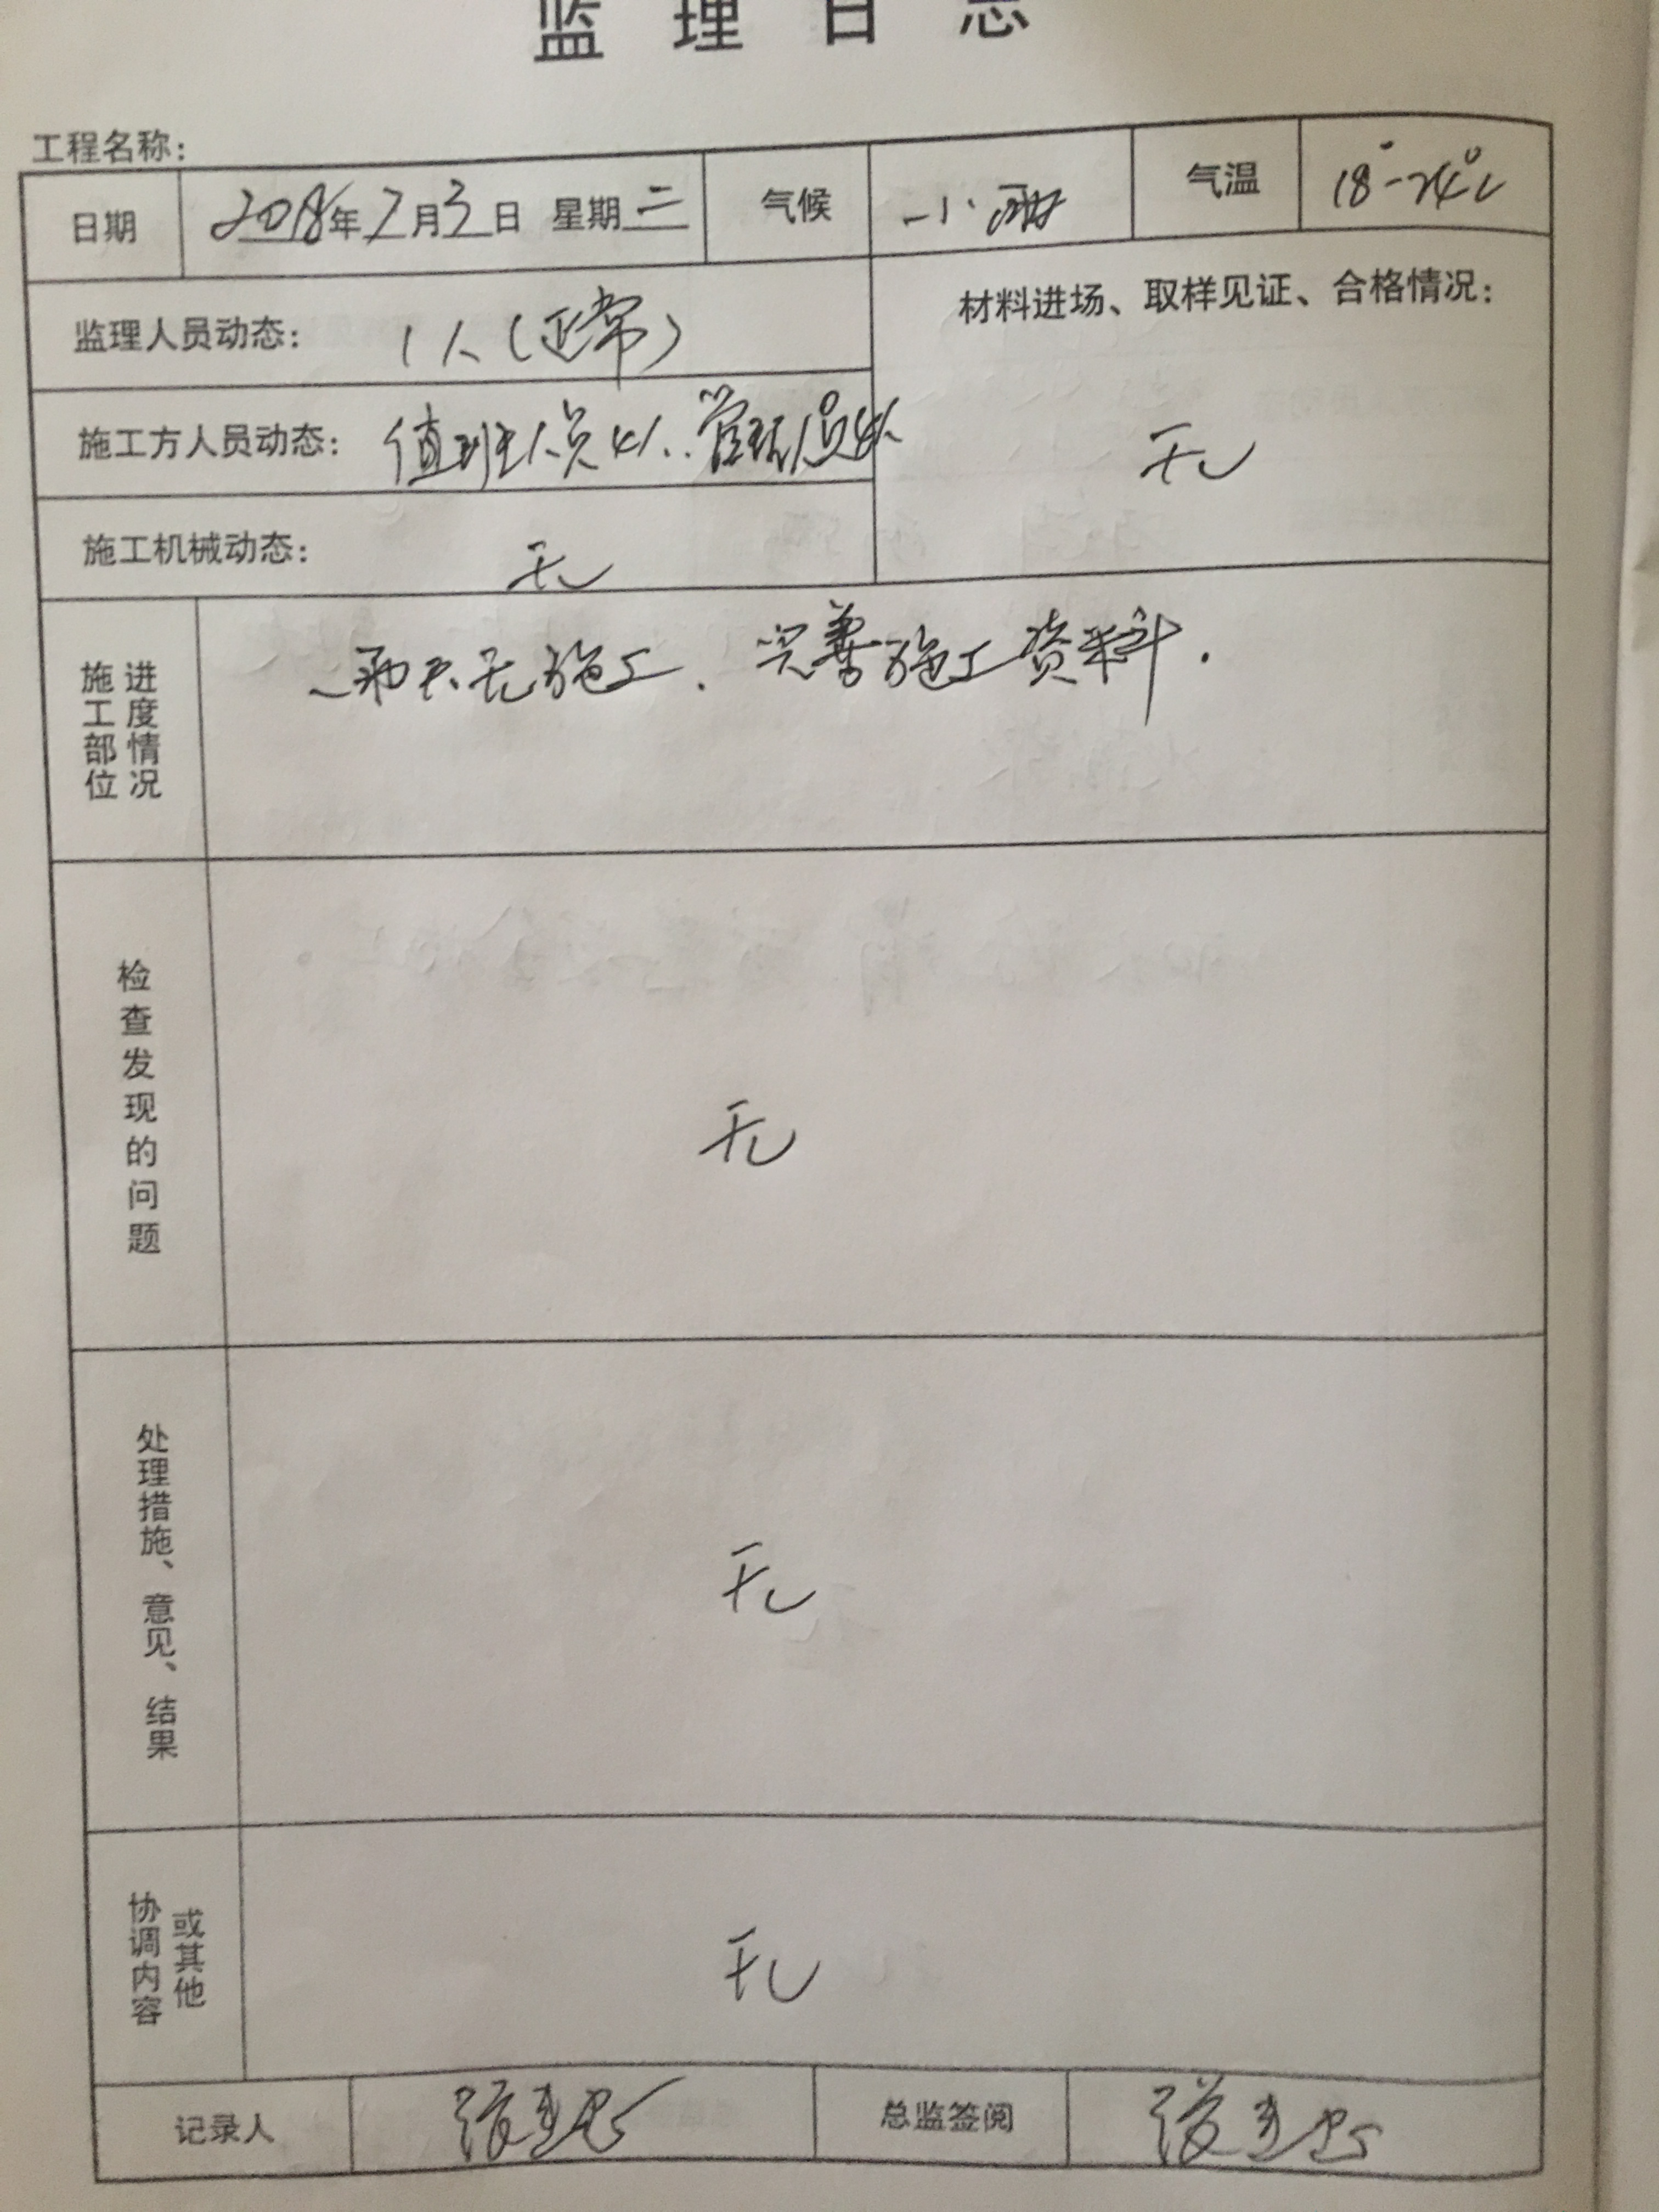 监理日志
工程名称：
日期 2018年7月3日 星期二 气候 小雨 气温 18°-24℃
监理人员动态： 1人（正常）
材料进场、取样见证、合格情况：
无
施工方人员动态： 值班人员4人、管理人员4人
施工机械动态： 无
施工部位
进度情况
雨天无施工．完善施工资料．
检查发现的问题
无
处理措施、意见、结果
无
协调内容
或其他
无
记录人
总监签阅